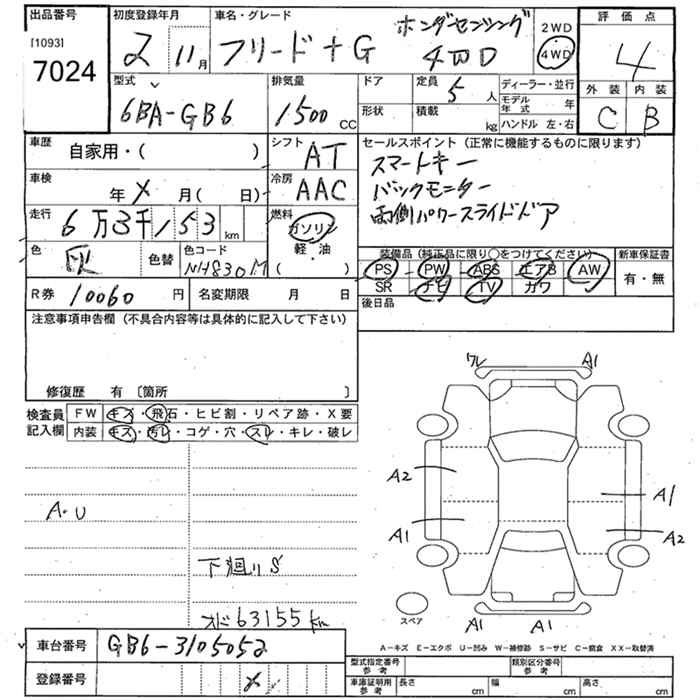 出品番号
[1093]
7024
初度登録年月
2 11月
車名・グレード
フリード+G ホンダセンシング 4WD
2WD
4WD
評価点
4
外装 内装
C B
型式
6BA-GB6
排気量
1500 CC
ドア
形状
定員 5 人
積載 kg
ディーラー・並行
モデル年式 年
ハンドル 左・右
車歴
自家用・( )
シフト
AT
セールスポイント (正常に機能するものに限ります)
スマートキー
バックモニター
両側パワースライドドア
車検
年 X 月( 日)
冷房
AAC
走行
6万3千153km
燃料
ガソリン
軽・油
( )
色
灰
色替
色コード
NH830M
装備品 (純正品に限り○をつけてください)
新車保証書
PS PW ABS エアB AW
SR ナビ TV カワ
有・無
R券 10060 円
名変期限 月 日
後日品
注意事項申告欄 (不具合内容等は具体的に記入して下さい)
修復歴 有 〔箇所 〕
検査員記入欄
FW キズ・飛石・ヒビ割・リペア跡・X要
内装 キズ・汚レ・コゲ・穴・スレ・キレ・破レ
ワレ A1
A2
A1
A1
A2
A1 A1
スペア
A・U
下廻りS
オド63155km
A-キズ E-エクボ U-凹み W-補修跡 S-サビ C-腐食 XX-取替済
車台番号 GB6-3105052
登録番号 X
型式指定番号
参考
類別区分番号
参考
車庫証明用
参考
長さ cm
幅 cm
高さ cm